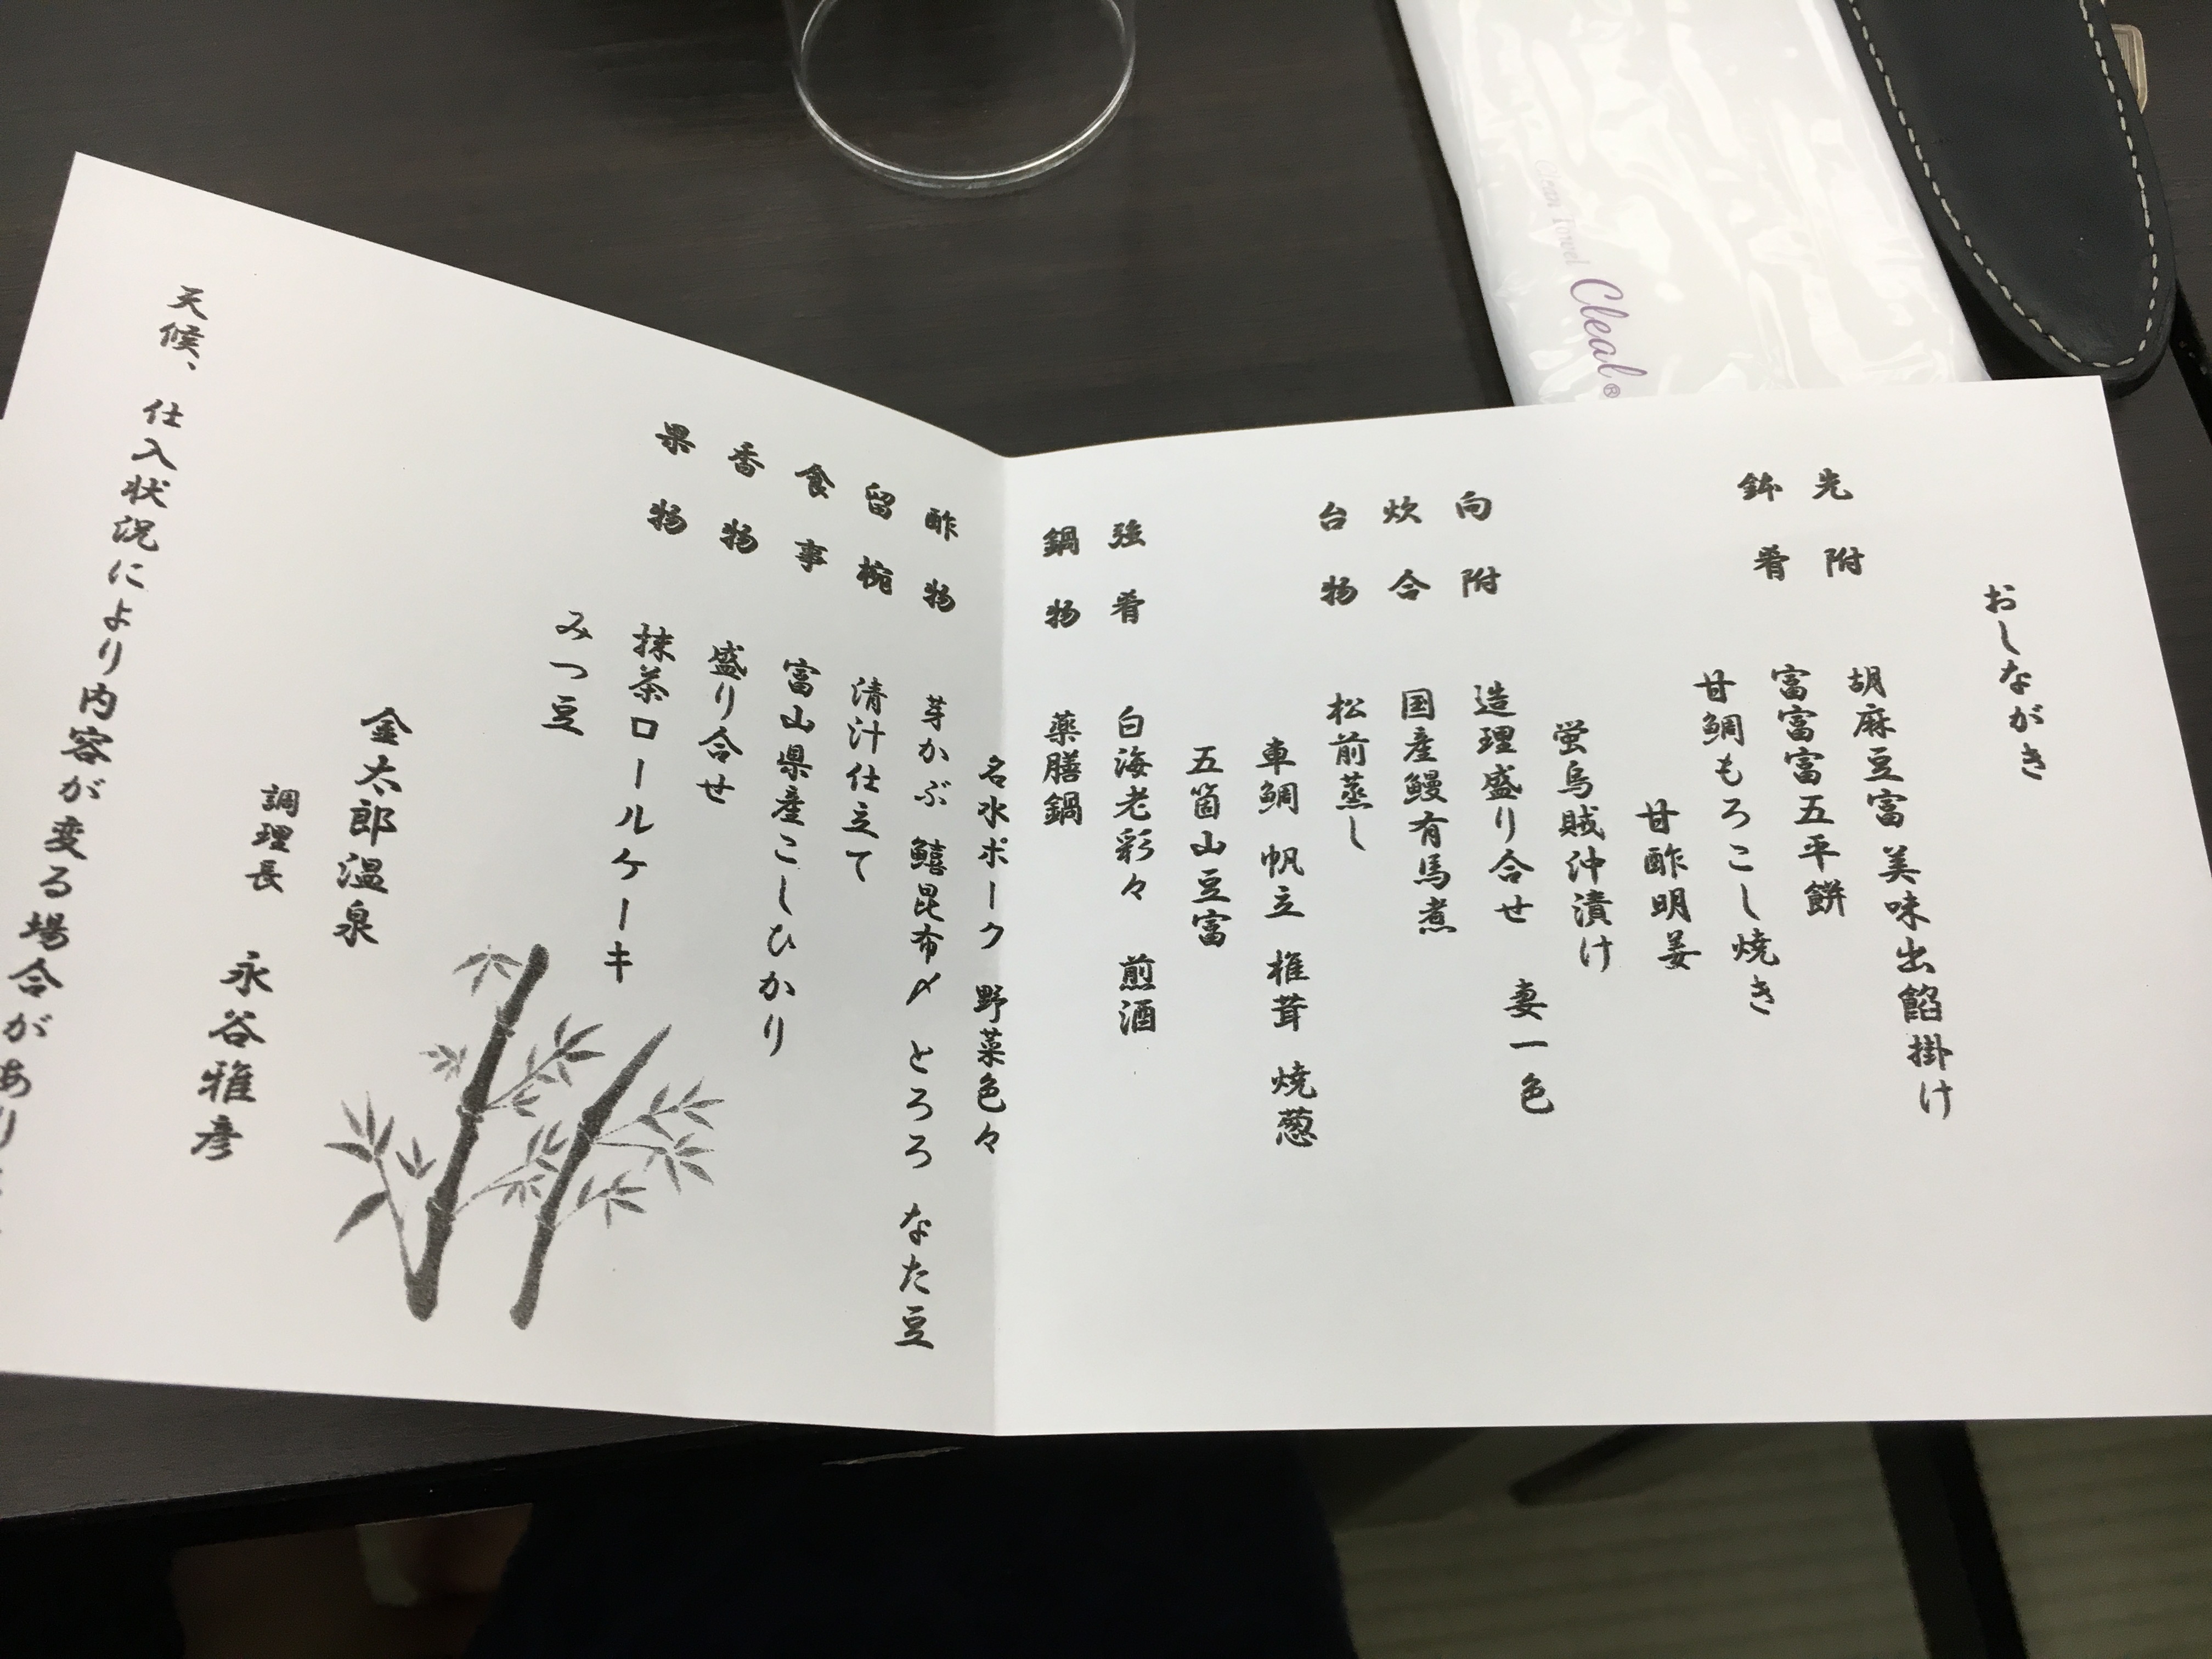 おしながき
先附 胡麻豆富 美味出餡掛け
鉢肴 富富富五平餅
甘鯛もろこし焼き
甘酢明姜
蛍烏賊沖漬け
向附 造理盛り合せ 妻一色
炊合 国産鰻有馬煮
台物 松前蒸し
車鯛 帆立 椎茸 焼葱
五箇山豆富
強肴 白海老彩々 煎酒
鍋物 薬膳鍋
名水ポーク 野菜色々
酢物 芽かぶ 鱚昆布〆 とろろ なた豆
留椀 清汁仕立て
食事 富山県産こしひかり
香物 盛り合せ
果物 抹茶ロールケーキ
みつ豆
金太郎温泉
調理長 永谷雅彦
天候、仕入状況により内容が変る場合があり
Clean Towel
Cleal®